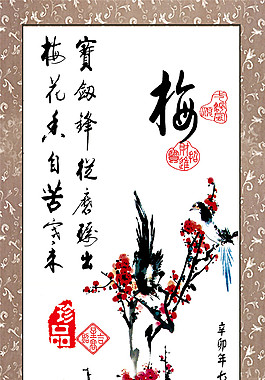 梅
寶劔鋒從磨礪出
梅花香自苦寒来
辛卯年
珍品